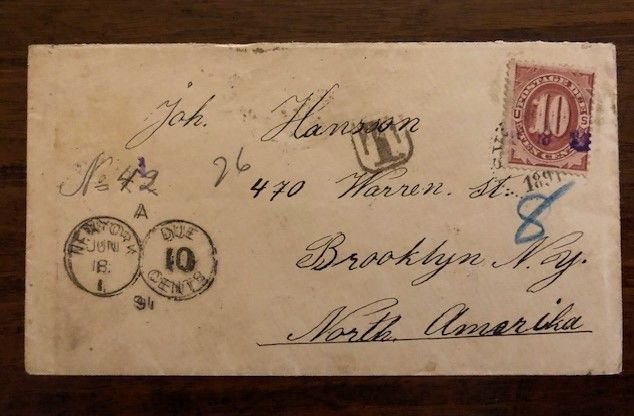 U.S. POSTAGE DUE
10
TEN CENTS
Joh. Hansson
T
No 42
26
470 Warren. st:
189
8
A
NEW YORK
JUN
18
1
91
DUE
10
CENTS
Brooklyn N.y.
North. Amerika